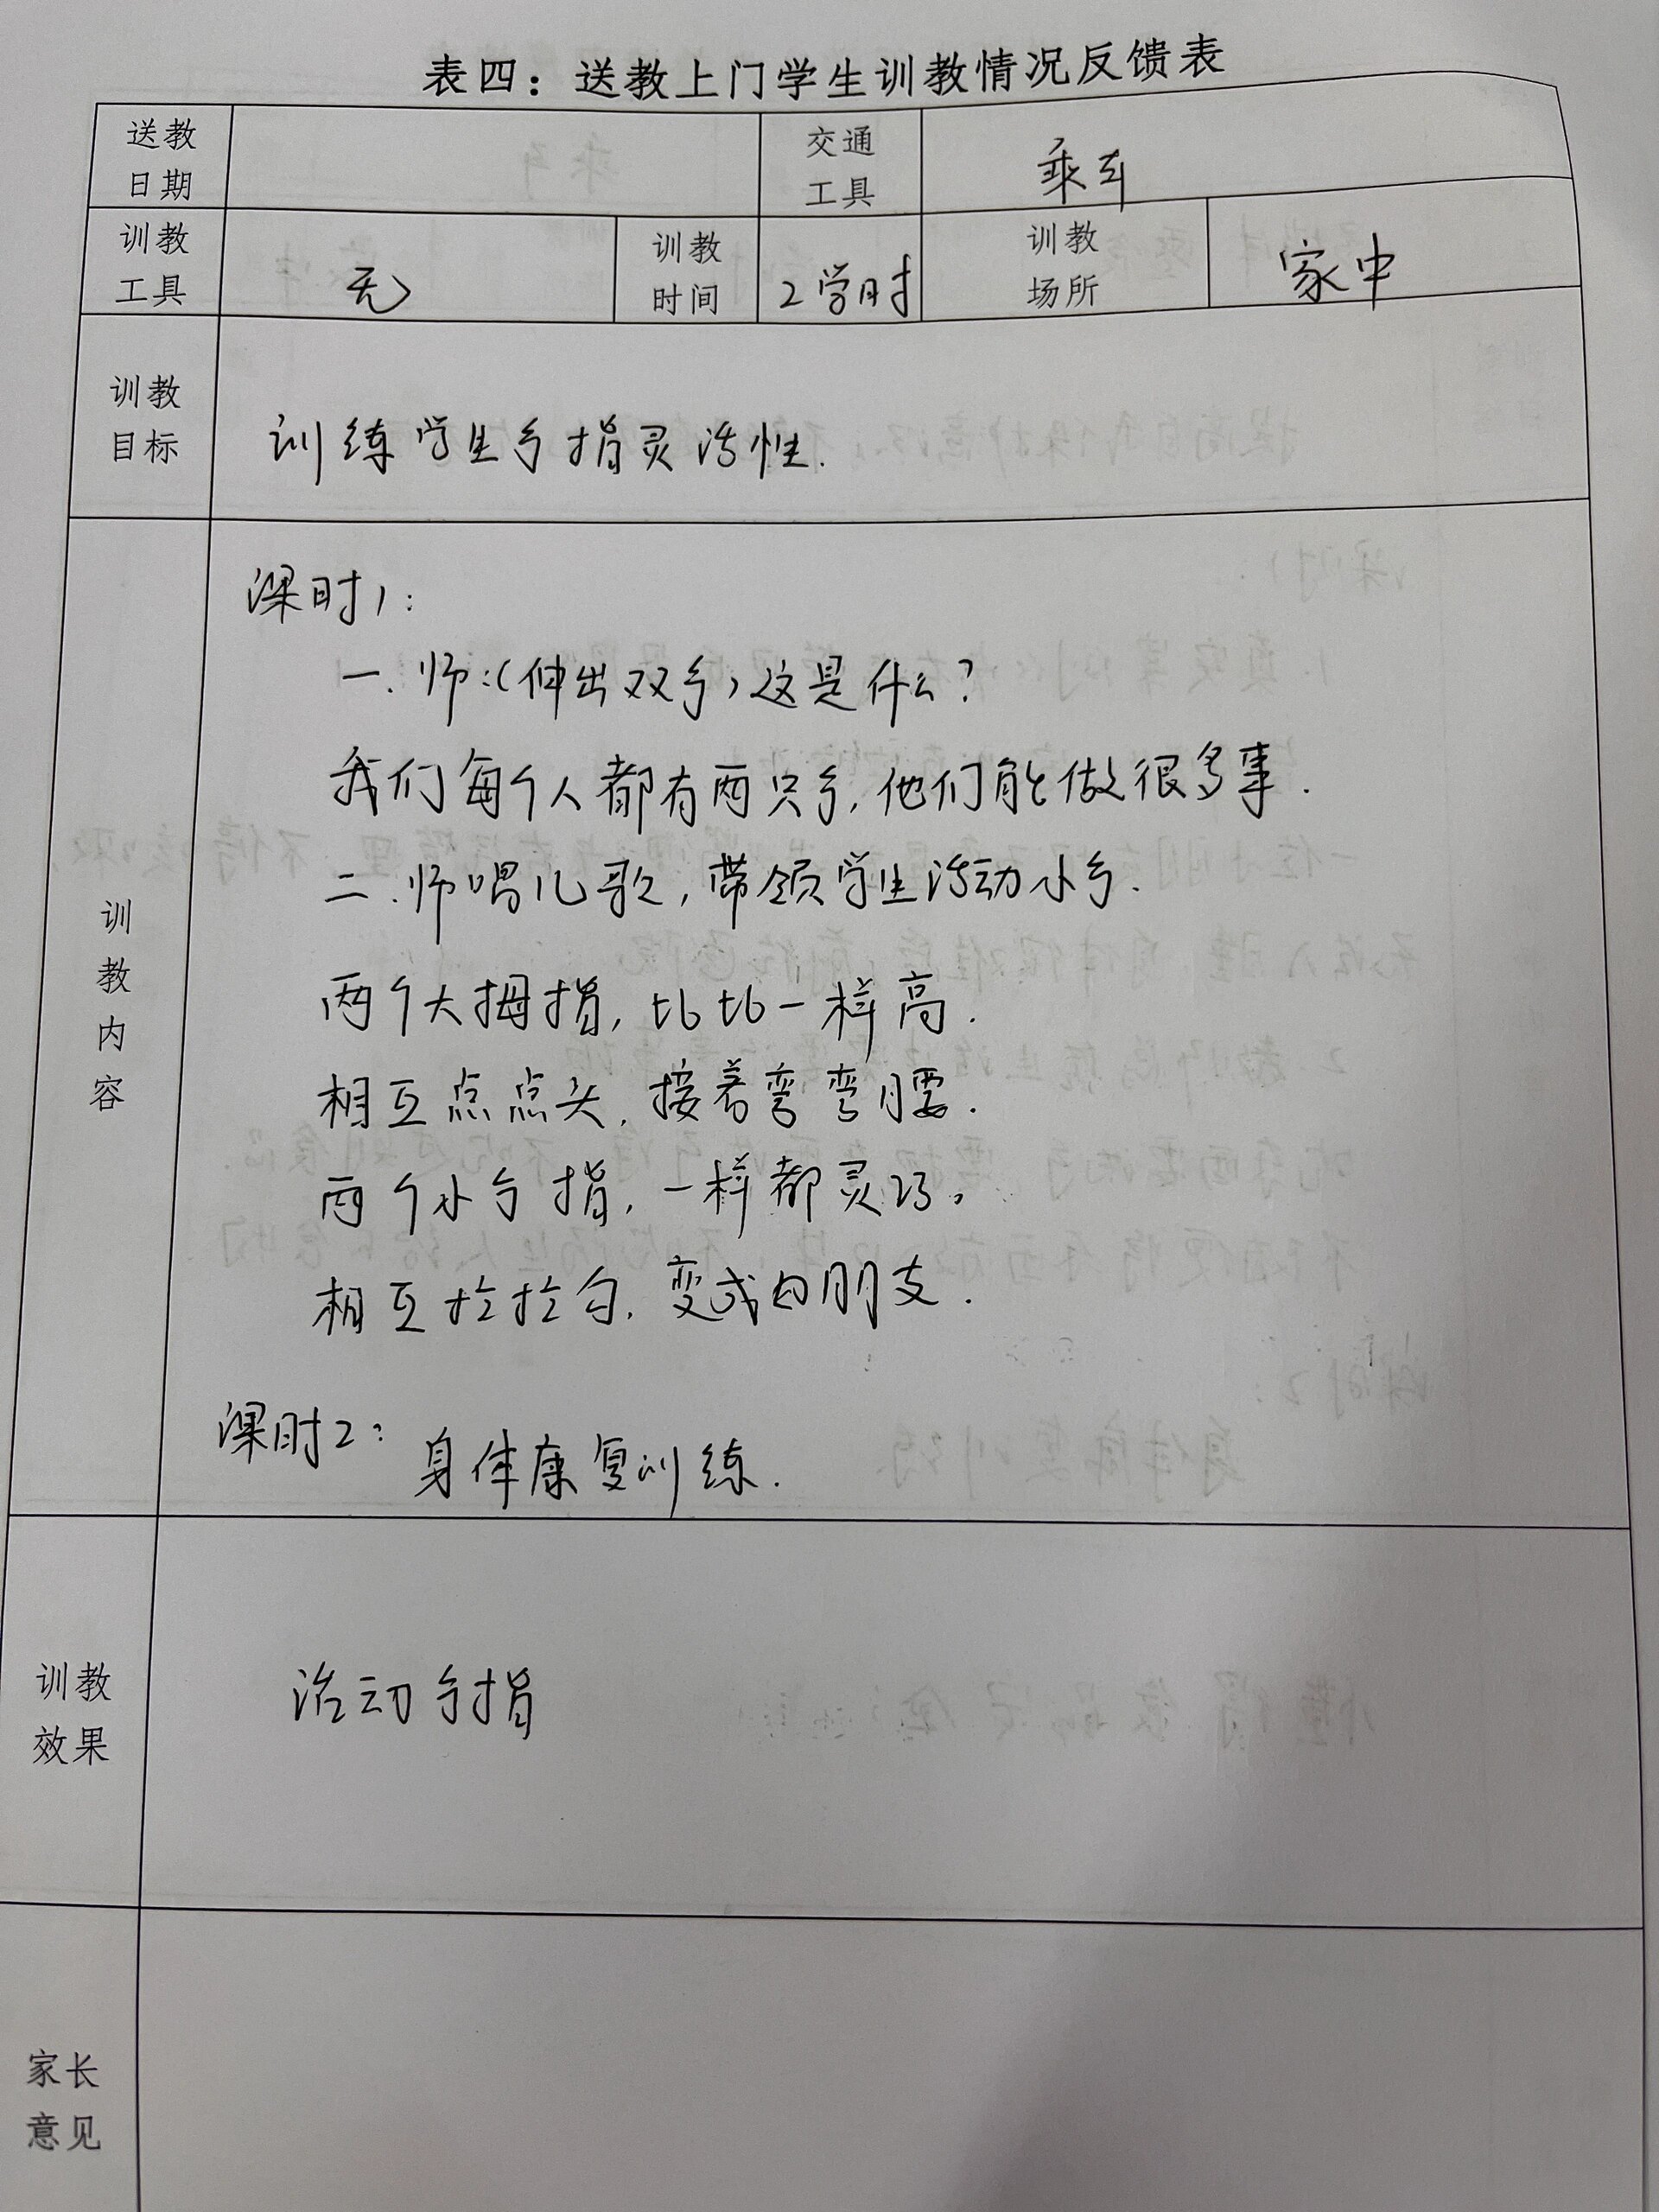 表四：送教上门学生训教情况反馈表
送教日期 交通工具 乘车
训教工具 无 训教时间 2学时 训教场所 家中
训教目标 训练学生手指灵活性.
训教内容
课时1:
一.师:(伸出双手)这是什么?
我们每个人都有两只手,他们能做很多事.
二.师唱儿歌,带领学生活动小手.
两个大拇指,比比一样高.
相互点点头,接着弯弯腰.
两个小手指,一样都灵巧.
相互拉拉勾,变成好朋友.
课时2: 身体康复训练.
训教效果 活动手指
家长意见